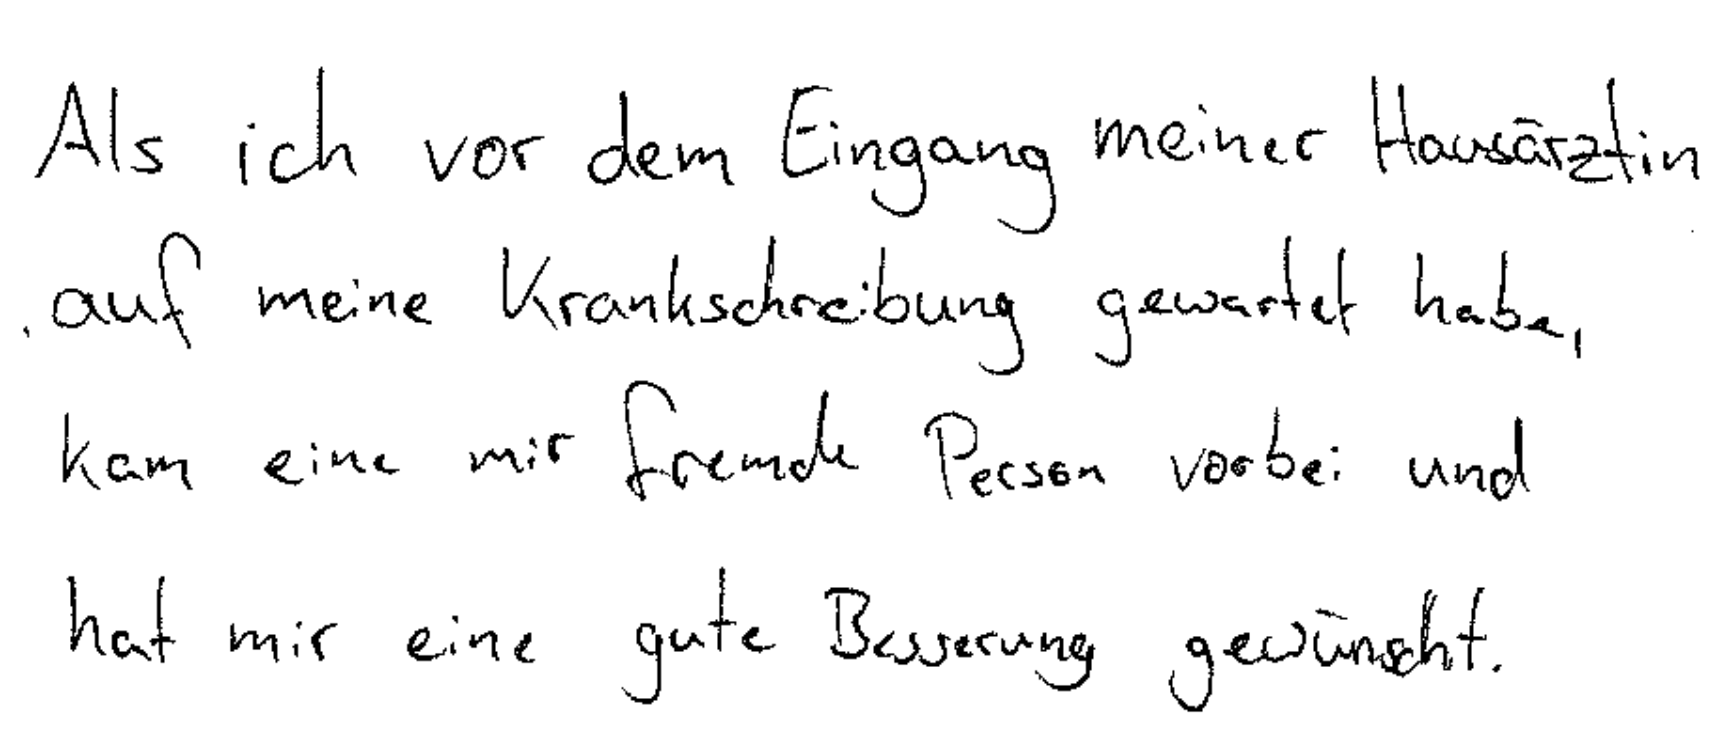 Als ich vor dem Eingang meiner Hausärztin
auf meine Krankschreibung gewartet habe,
kam eine mir fremde Person vorbei und
hat mir eine gute Besserung gewünscht.